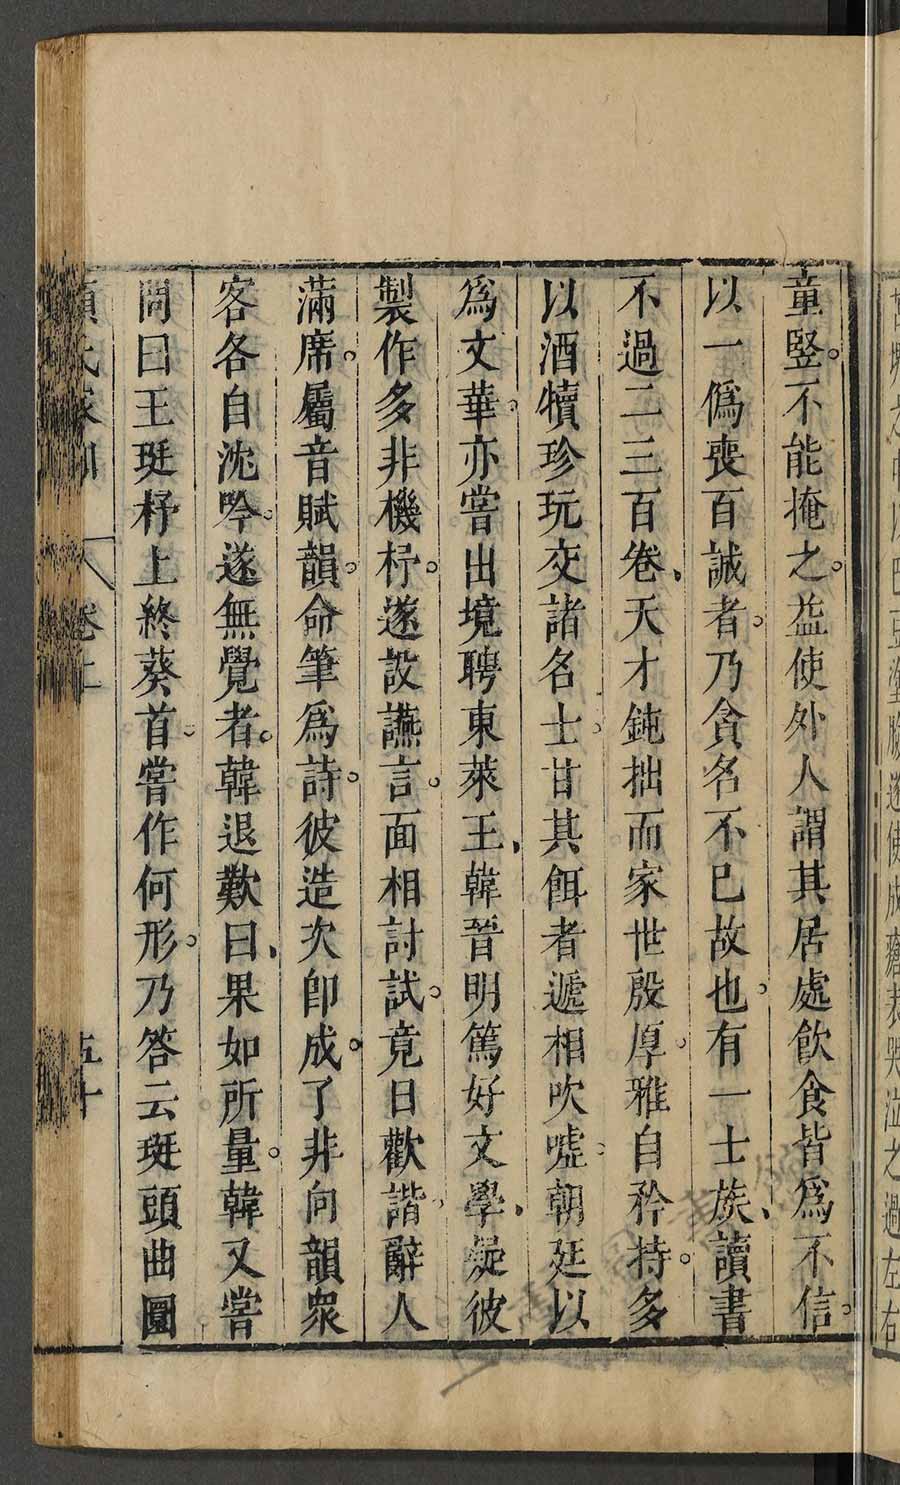 童竪。不能掩之。益使外人謂其居處飲食皆爲不信。
以一僞喪百誠者。乃貪名不已故也。有一士族、讀書
不過二三百卷、天才鈍拙而家世殷厚。雅自矜持。多
以酒犢珍玩交諸名士。甘其餌者遞相吹嘘。朝廷以
爲文華。亦嘗出境聘東萊王、韓晉明篤好文學、疑彼
製作多非機杼。遂設讌言。面相討試。竟日歡諧。辭人
滿席。屬音賦韻。命筆爲詩。彼造次即成。了非向韻衆
客各自沈吟。遂無覺者。韓退歎曰、果如所量。韓又嘗
問曰王珽杼上終葵首。嘗作何形。乃答云珽頭曲圜
卷上
五十